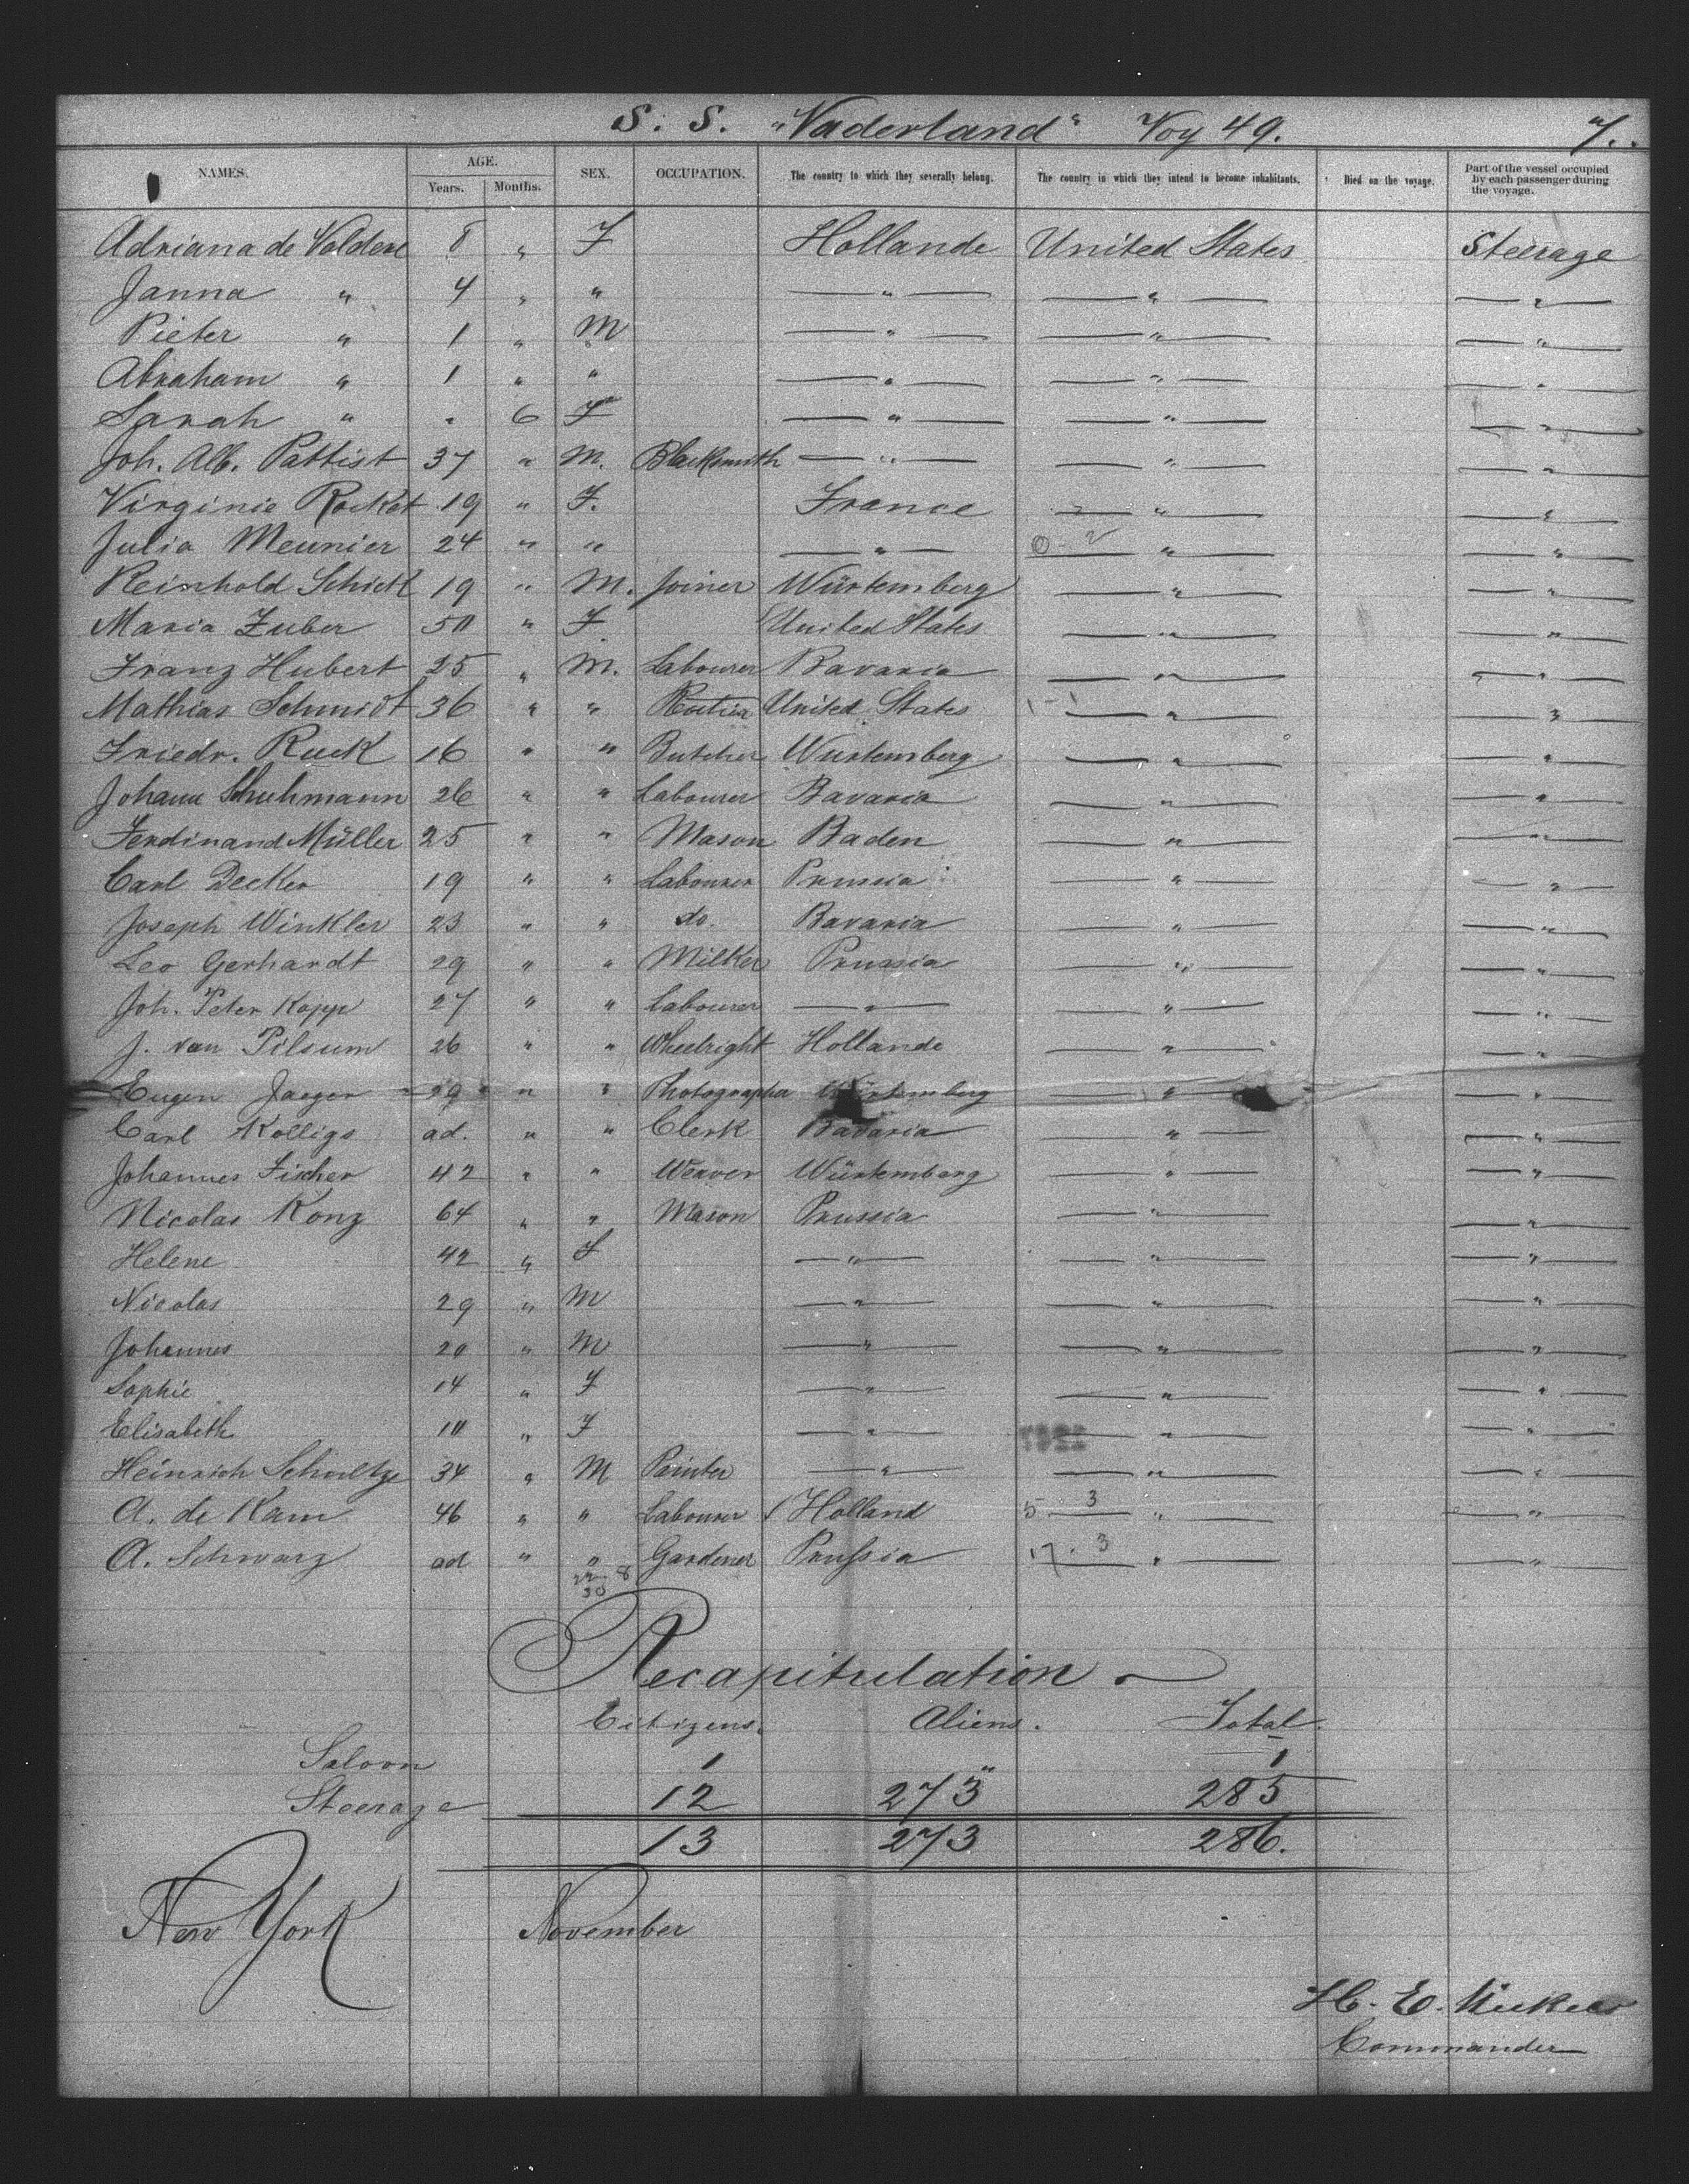 S. S. "Vaderland" Voy 49. 7.
NAMES. AGE. Years. Months. SEX. OCCUPATION. The country to which they severally belong. The country in which they intend to become inhabitants. Died on the voyage. Part of the vessel occupied by each passenger during the voyage.
Adriana de 8 " F Hollande United States Steerage
Janna " 4 " " " " "
Pieter " 1 " M " " "
Abraham " 1 " " " " "
Sarah " " 6 F " " "
Joh. Alb. Pattist 37 " M. Blacksmith " " "
Virginie 19 " F. France " "
Julia Meunier 24 " " " " "
Reinhold 19 " M. Joiner Würtemberg " "
Maria Zuber 50 " F United States " "
Franz Hubert 25 " M. Labourer Bavaria " "
Mathias Schmidt 36 " " United States " "
Friedr. Ruck 16 " " Butcher Wurtemberg " "
Johann Schuhmann 26 " " Labourer Bavaria " "
Ferdinand Müller 25 " " Mason Baden " "
Carl Decker 19 " " Labourer Prussia " "
Joseph Winkler 23 " " do. Bavaria " "
Leo Gerhardt 29 " " Milker Prussia " "
Joh. Peter Kopp 27 " " Labourer " " "
J. van Pilsum 26 " " Wheelright Hollande " "
Eugen Jaeger 29 " " Photographer Würtemberg " "
Carl Kolligs ad. " " Clerk Bavaria " "
Johannes Fischer 42 " " Weaver Würtemberg " "
Nicolas Konz 64 " " Mason Prussia " "
Helene 42 " F " " "
Nicolas 29 " M " " "
Johannes 20 " M " " "
Sophie 14 " F " " "
Elisabeth 10 " F " " "
Heinrich Schultze 34 " M Painter " " "
A. de Kam 46 " " Labourer Holland 5 3 " "
A. Schwarz ad " " Gardener Prussia 17. 3 " "
22 8
30
Recapitulation
Citizens. Aliens. Total.
Saloon 1 " 1
Steerage 12 273 285
13 273 286.
New York November
H. E.
Commander